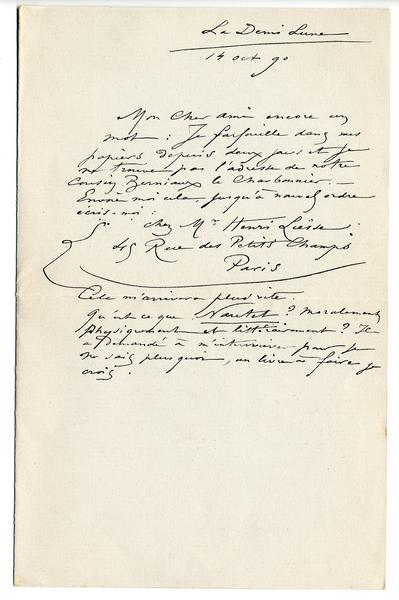 La Demi Lune
14 oct 90
Mon cher ami encore un
mot : Je farfouille dans mes
papiers depuis deux jours et je
ne trouve pas l'adresse de notre
Cousin Berniaux le Charbonnier. —
Envoie moi cela, jusqu'à nouvel ordre
écris-moi :
chez Mr Henri Liesse
45 Rue des Petits Champs
Paris
Cela m'arrivera plus vite.
Qu'est ce que Nautet ? moralement
physiquement et littérairement ? Il
a demandé à m'interviewer pour je
ne sais plus quoi, un livre à faire je
crois.